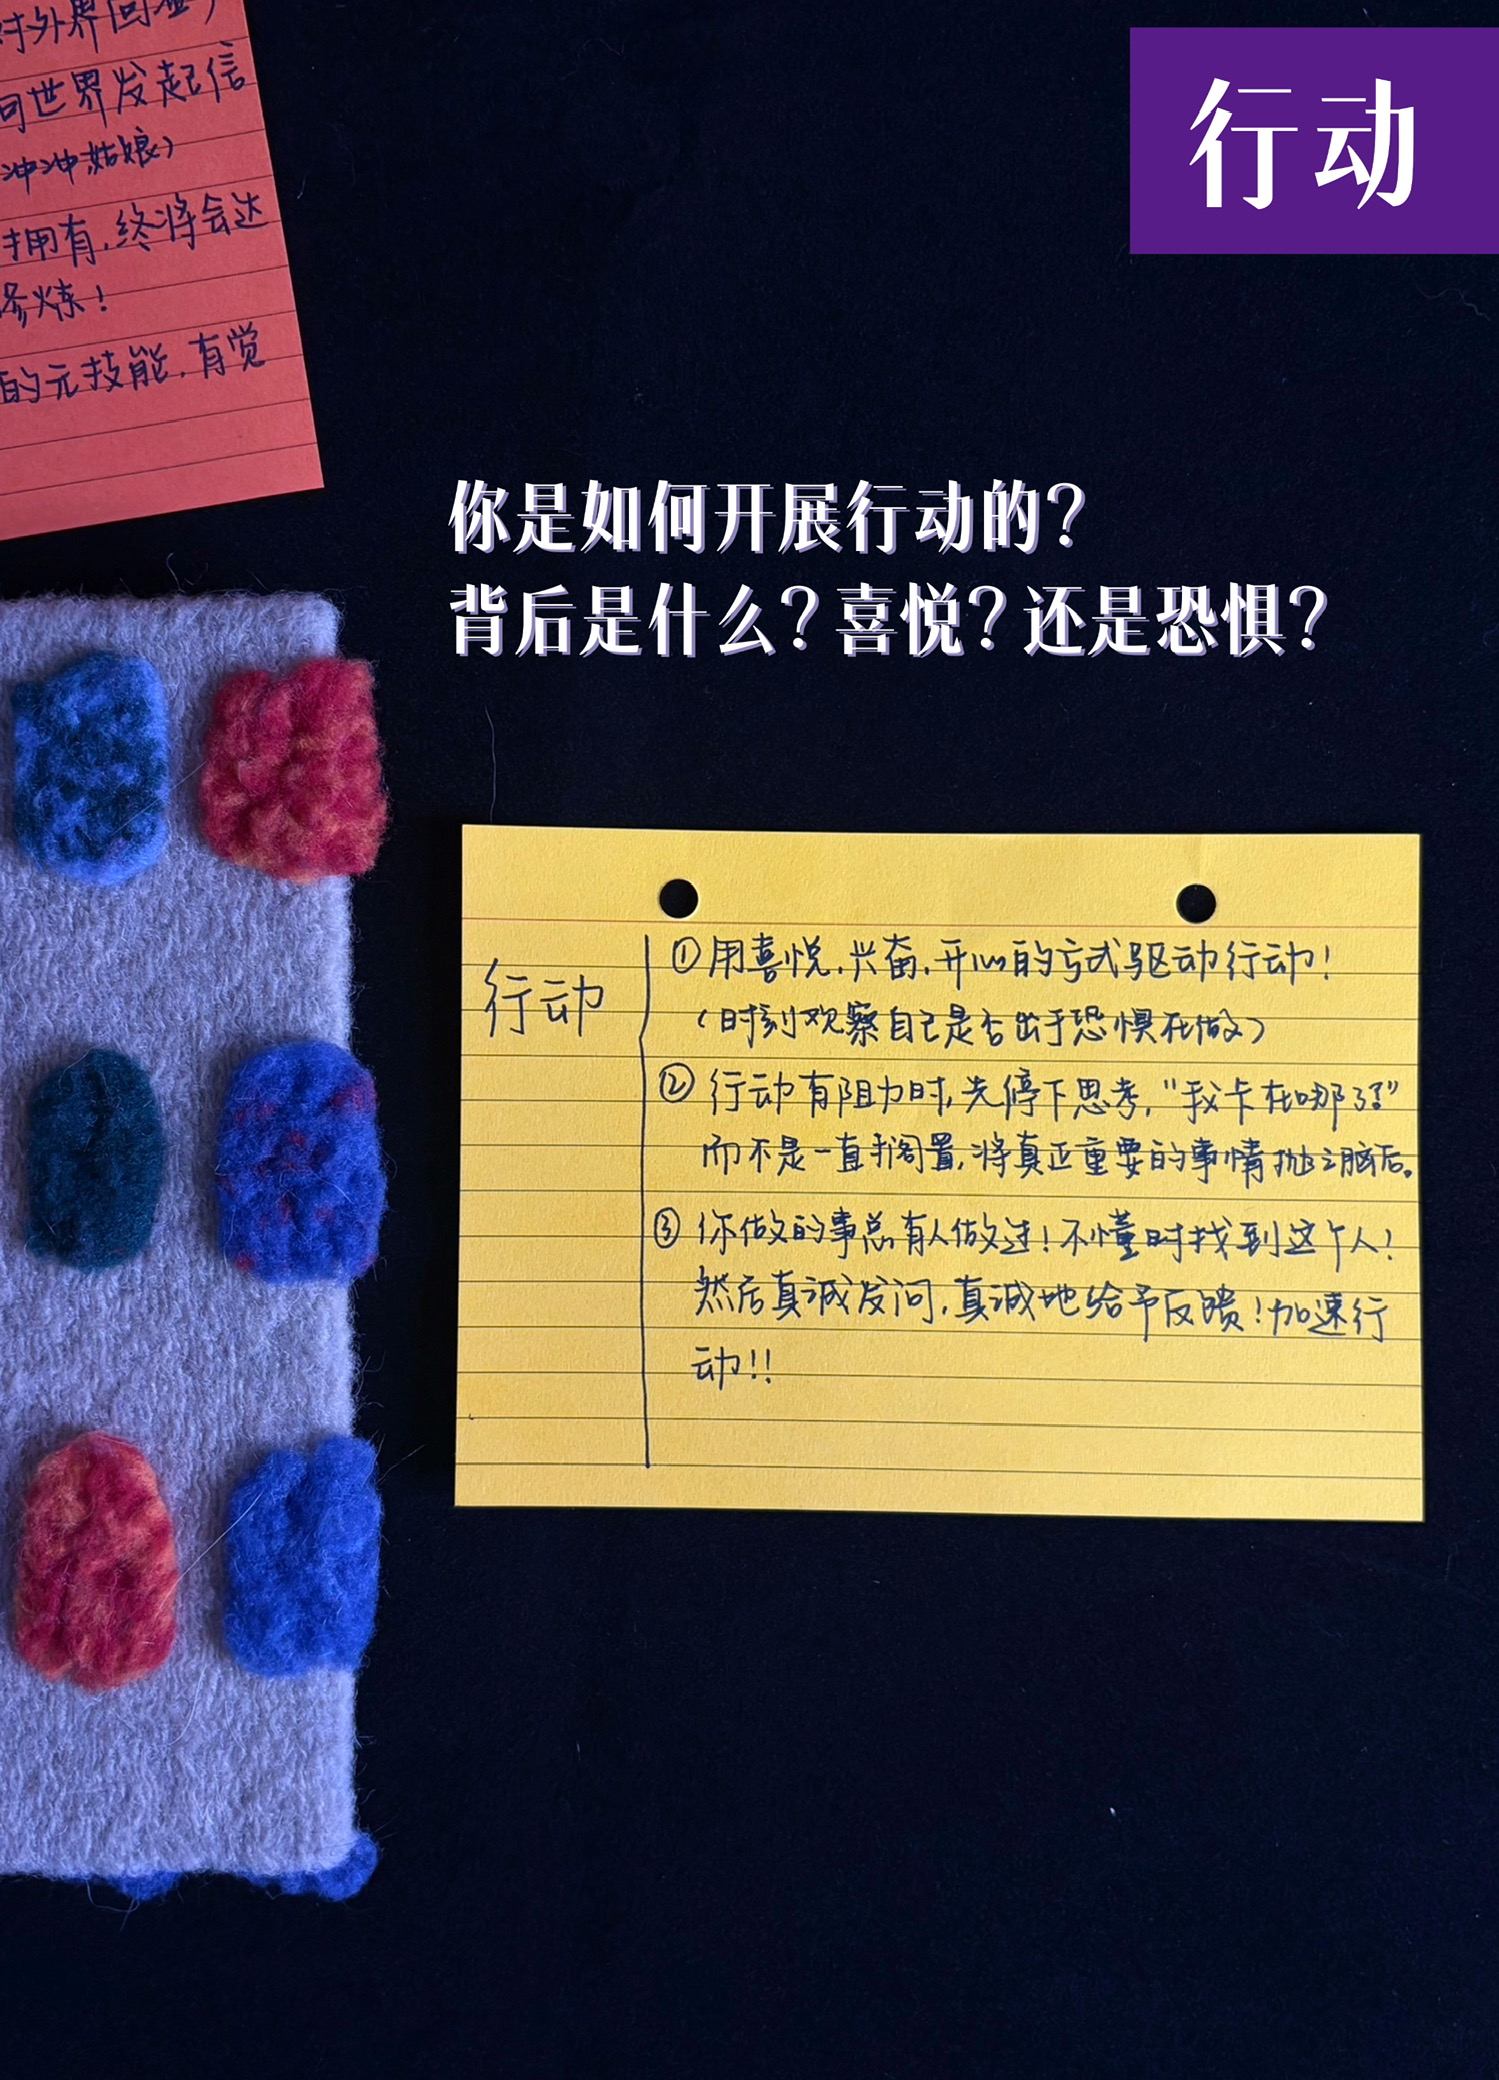 对外界回应
向世界发起信
冲冲姑娘）
拥有，终将会达
修炼！
的元技能，有觉
行动
你是如何开展行动的？
背后是什么？喜悦？还是恐惧？
行动
①用喜悦、兴奋、开心的方式驱动行动！
（时刻观察自己是否出于恐惧在做）
②行动有阻力时，先停下思考，“我卡在哪了？”
而不是一直搁置，将真正重要的事情抛之脑后。
③你做的事总有人做过！不懂时找到这个人！
然后真诚发问，真诚地给予反馈！加速行
动！！